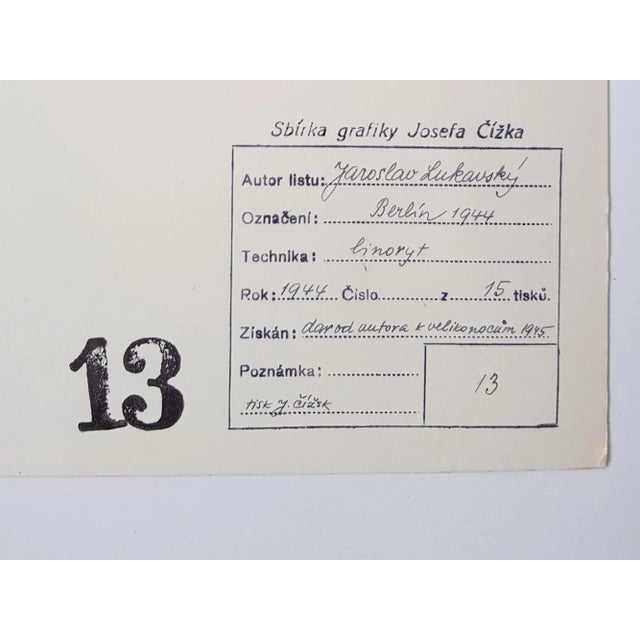 Sbírka grafiky Josefa Čížka
Autor listu: Jaroslav Lukavský
Označení: Berlín 1944
Technika: linoryt
Rok: 1944 Číslo z 15 tisků.
Získán: dar od autora k velikonocům 1945.
Poznámka:
tisk J. Čížek
13
13